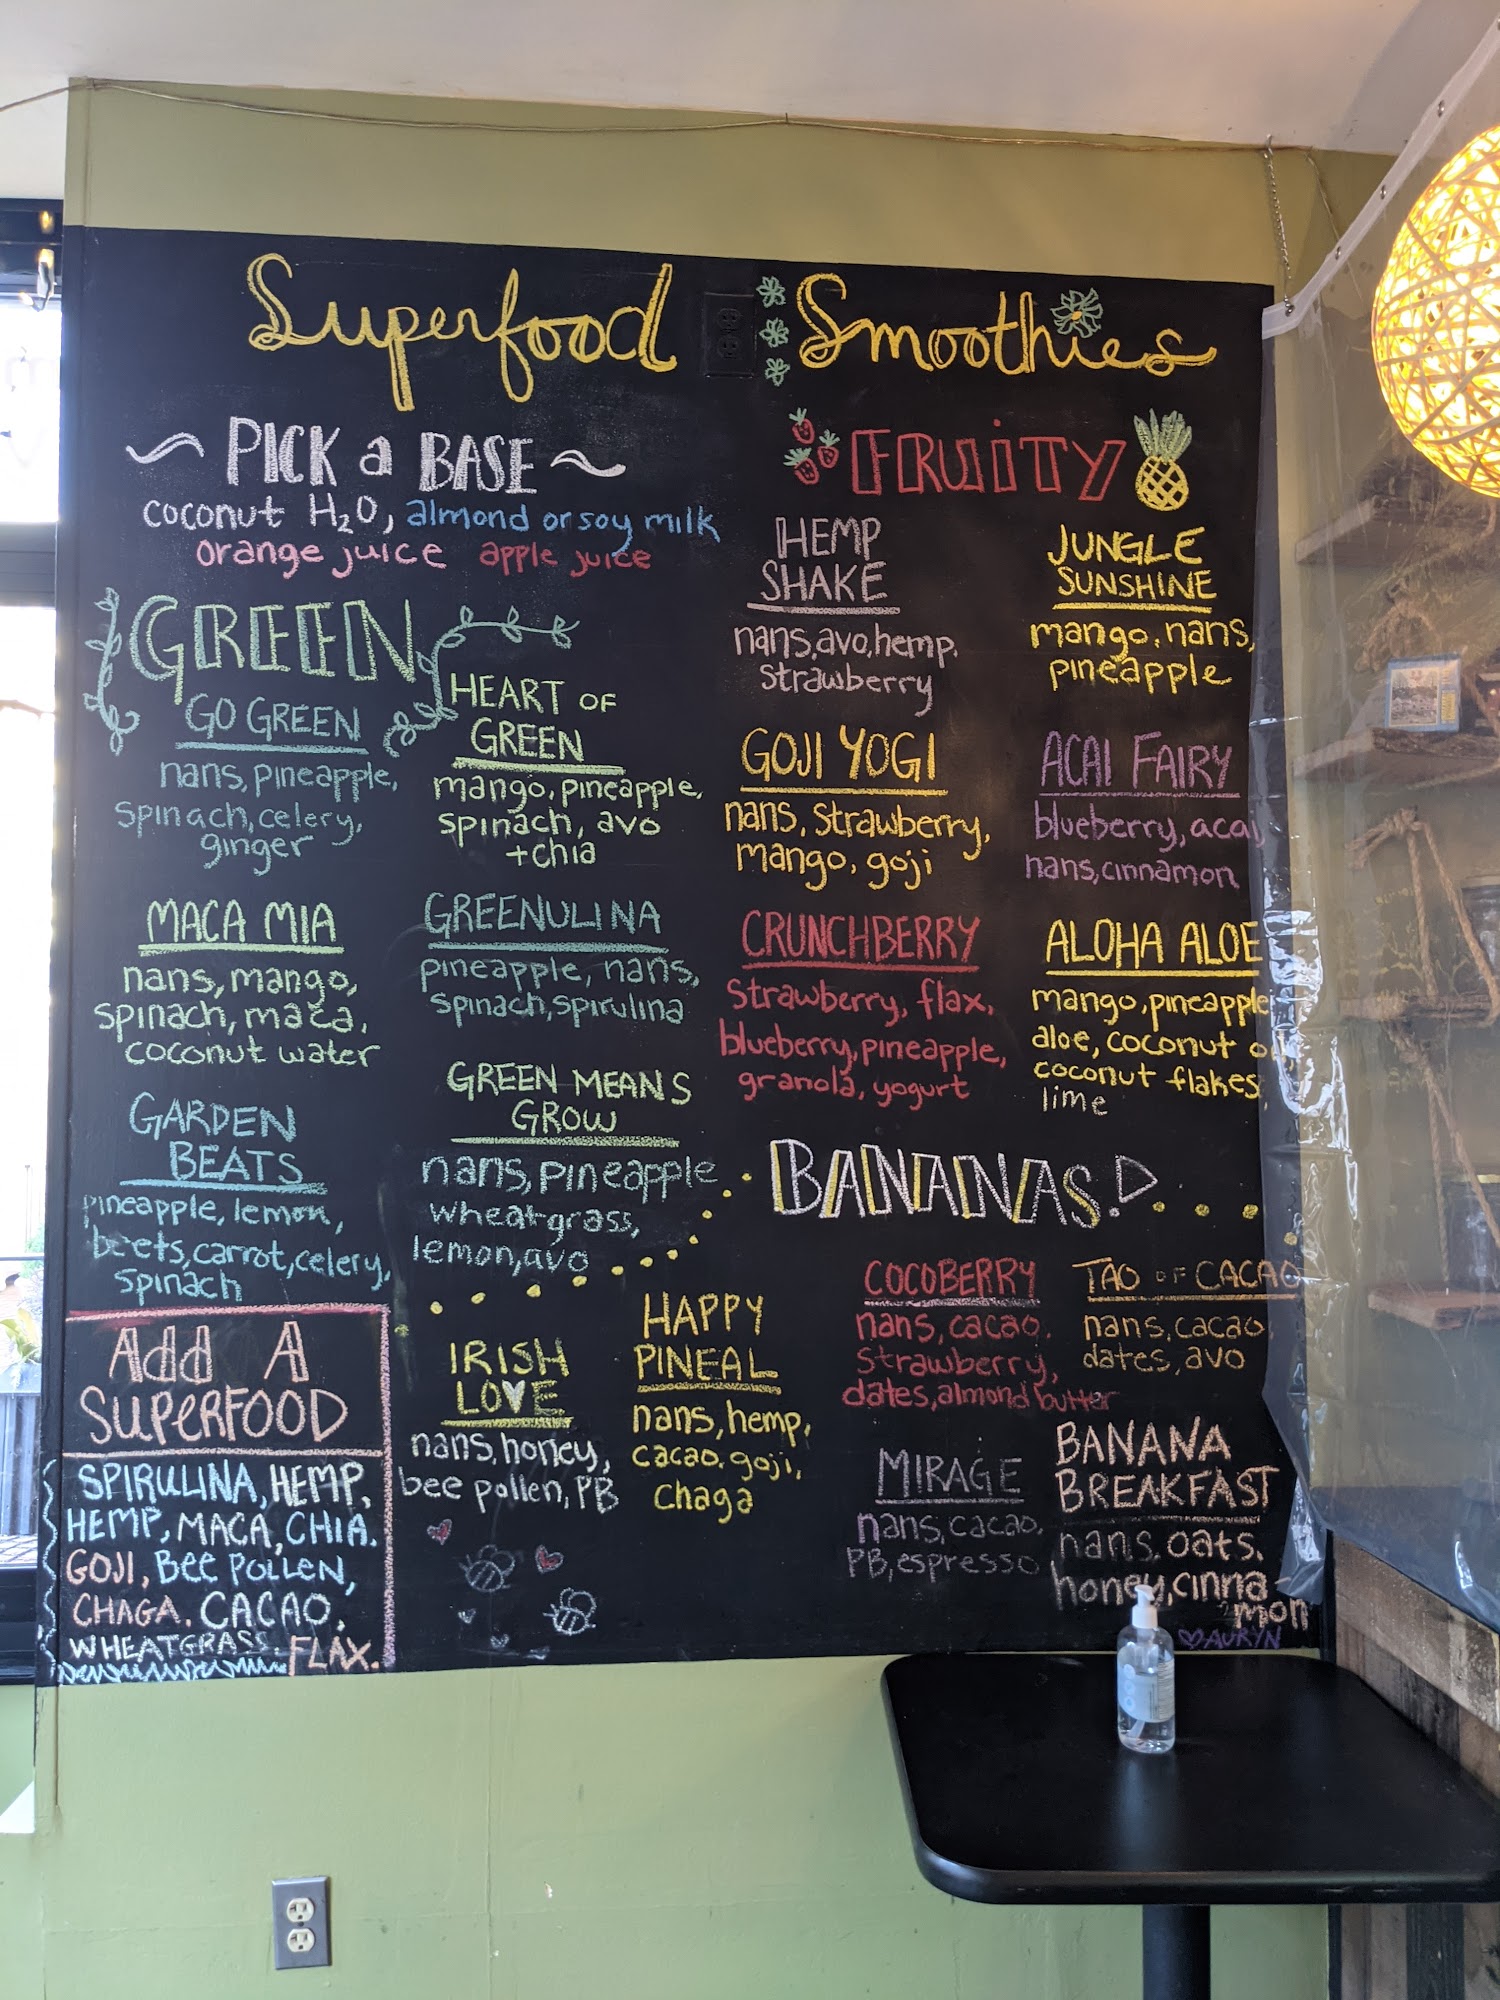 Superfood Smoothies
~ PICK a BASE ~
coconut H₂O, almond or soy milk
orange juice apple juice
GREEN
GO GREEN
nans, pineapple,
spinach, celery,
ginger
HEART OF
GREEN
mango, pineapple,
spinach, avo
+chia
MACA MIA
nans, mango,
spinach, maca,
coconut water
GREENULINA
pineapple, nans,
spinach, spirulina
GARDEN
BEATS
pineapple, lemon,
beets, carrot, celery,
spinach
GREEN MEANS
GROW
nans, pineapple
wheatgrass,
lemon, avo
Add A
SUPERFOOD
SPIRULINA, HEMP,
HEMP, MACA, CHIA.
GOJI, BEE POLLEN,
CHAGA. CACAO,
WHEATGRASS. FLAX.
FRUiTY
HEMP
SHAKE
nans, avo, hemp.
strawberry
JUNGLE
SUNSHINE
mango, nans,
pineapple
GOJI YOGI
nans, strawberry,
mango, goji
ACAI FAIRY
blueberry, acai,
nans, cinnamon
CRUNCHBERRY
strawberry, flax,
blueberry, pineapple,
granola, yogurt
ALOHA ALOE
mango, pineapple
aloe, coconut
coconut flakes,
lime
BANANAS!
IRISH
LOVE
nans, honey,
bee pollen, PB
HAPPY
PINEAL
nans, hemp,
cacao, goji,
chaga
COCOBERRY
nans, cacao,
strawberry,
dates, almond butter
TAO OF CACAO
nans, cacao,
dates, avo
MIRAGE
nans, cacao,
PB, espresso
BANANA
BREAKFAST
nans. oats.
honey, cinna
mon
AURYN